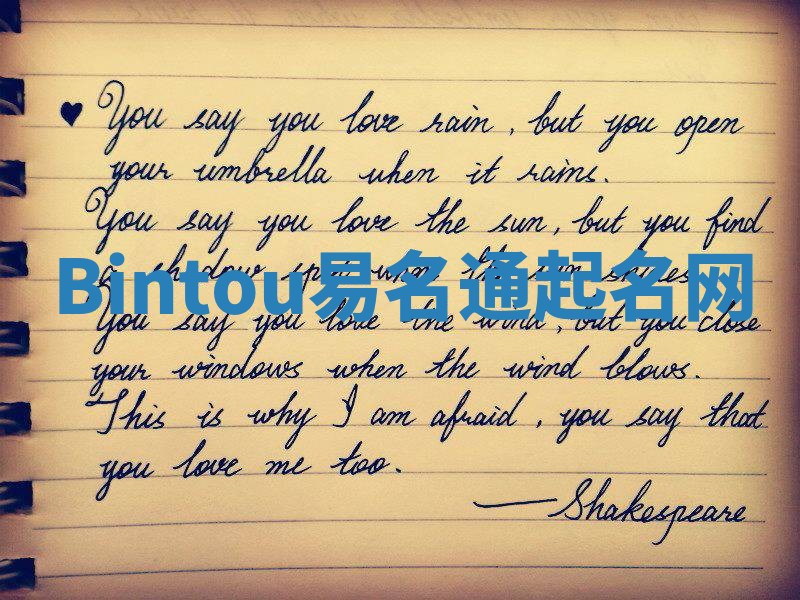 ♥ You say you love rain, but you open
your umbrella when it rains.
You say you love the sun, but you find
a shadow spot when the sun shines.
Bintou易名通起名网
You say you love the wind, but you close
your windows when the wind blows.
This is why I am afraid, you say that
you love me too.
— Shakespeare